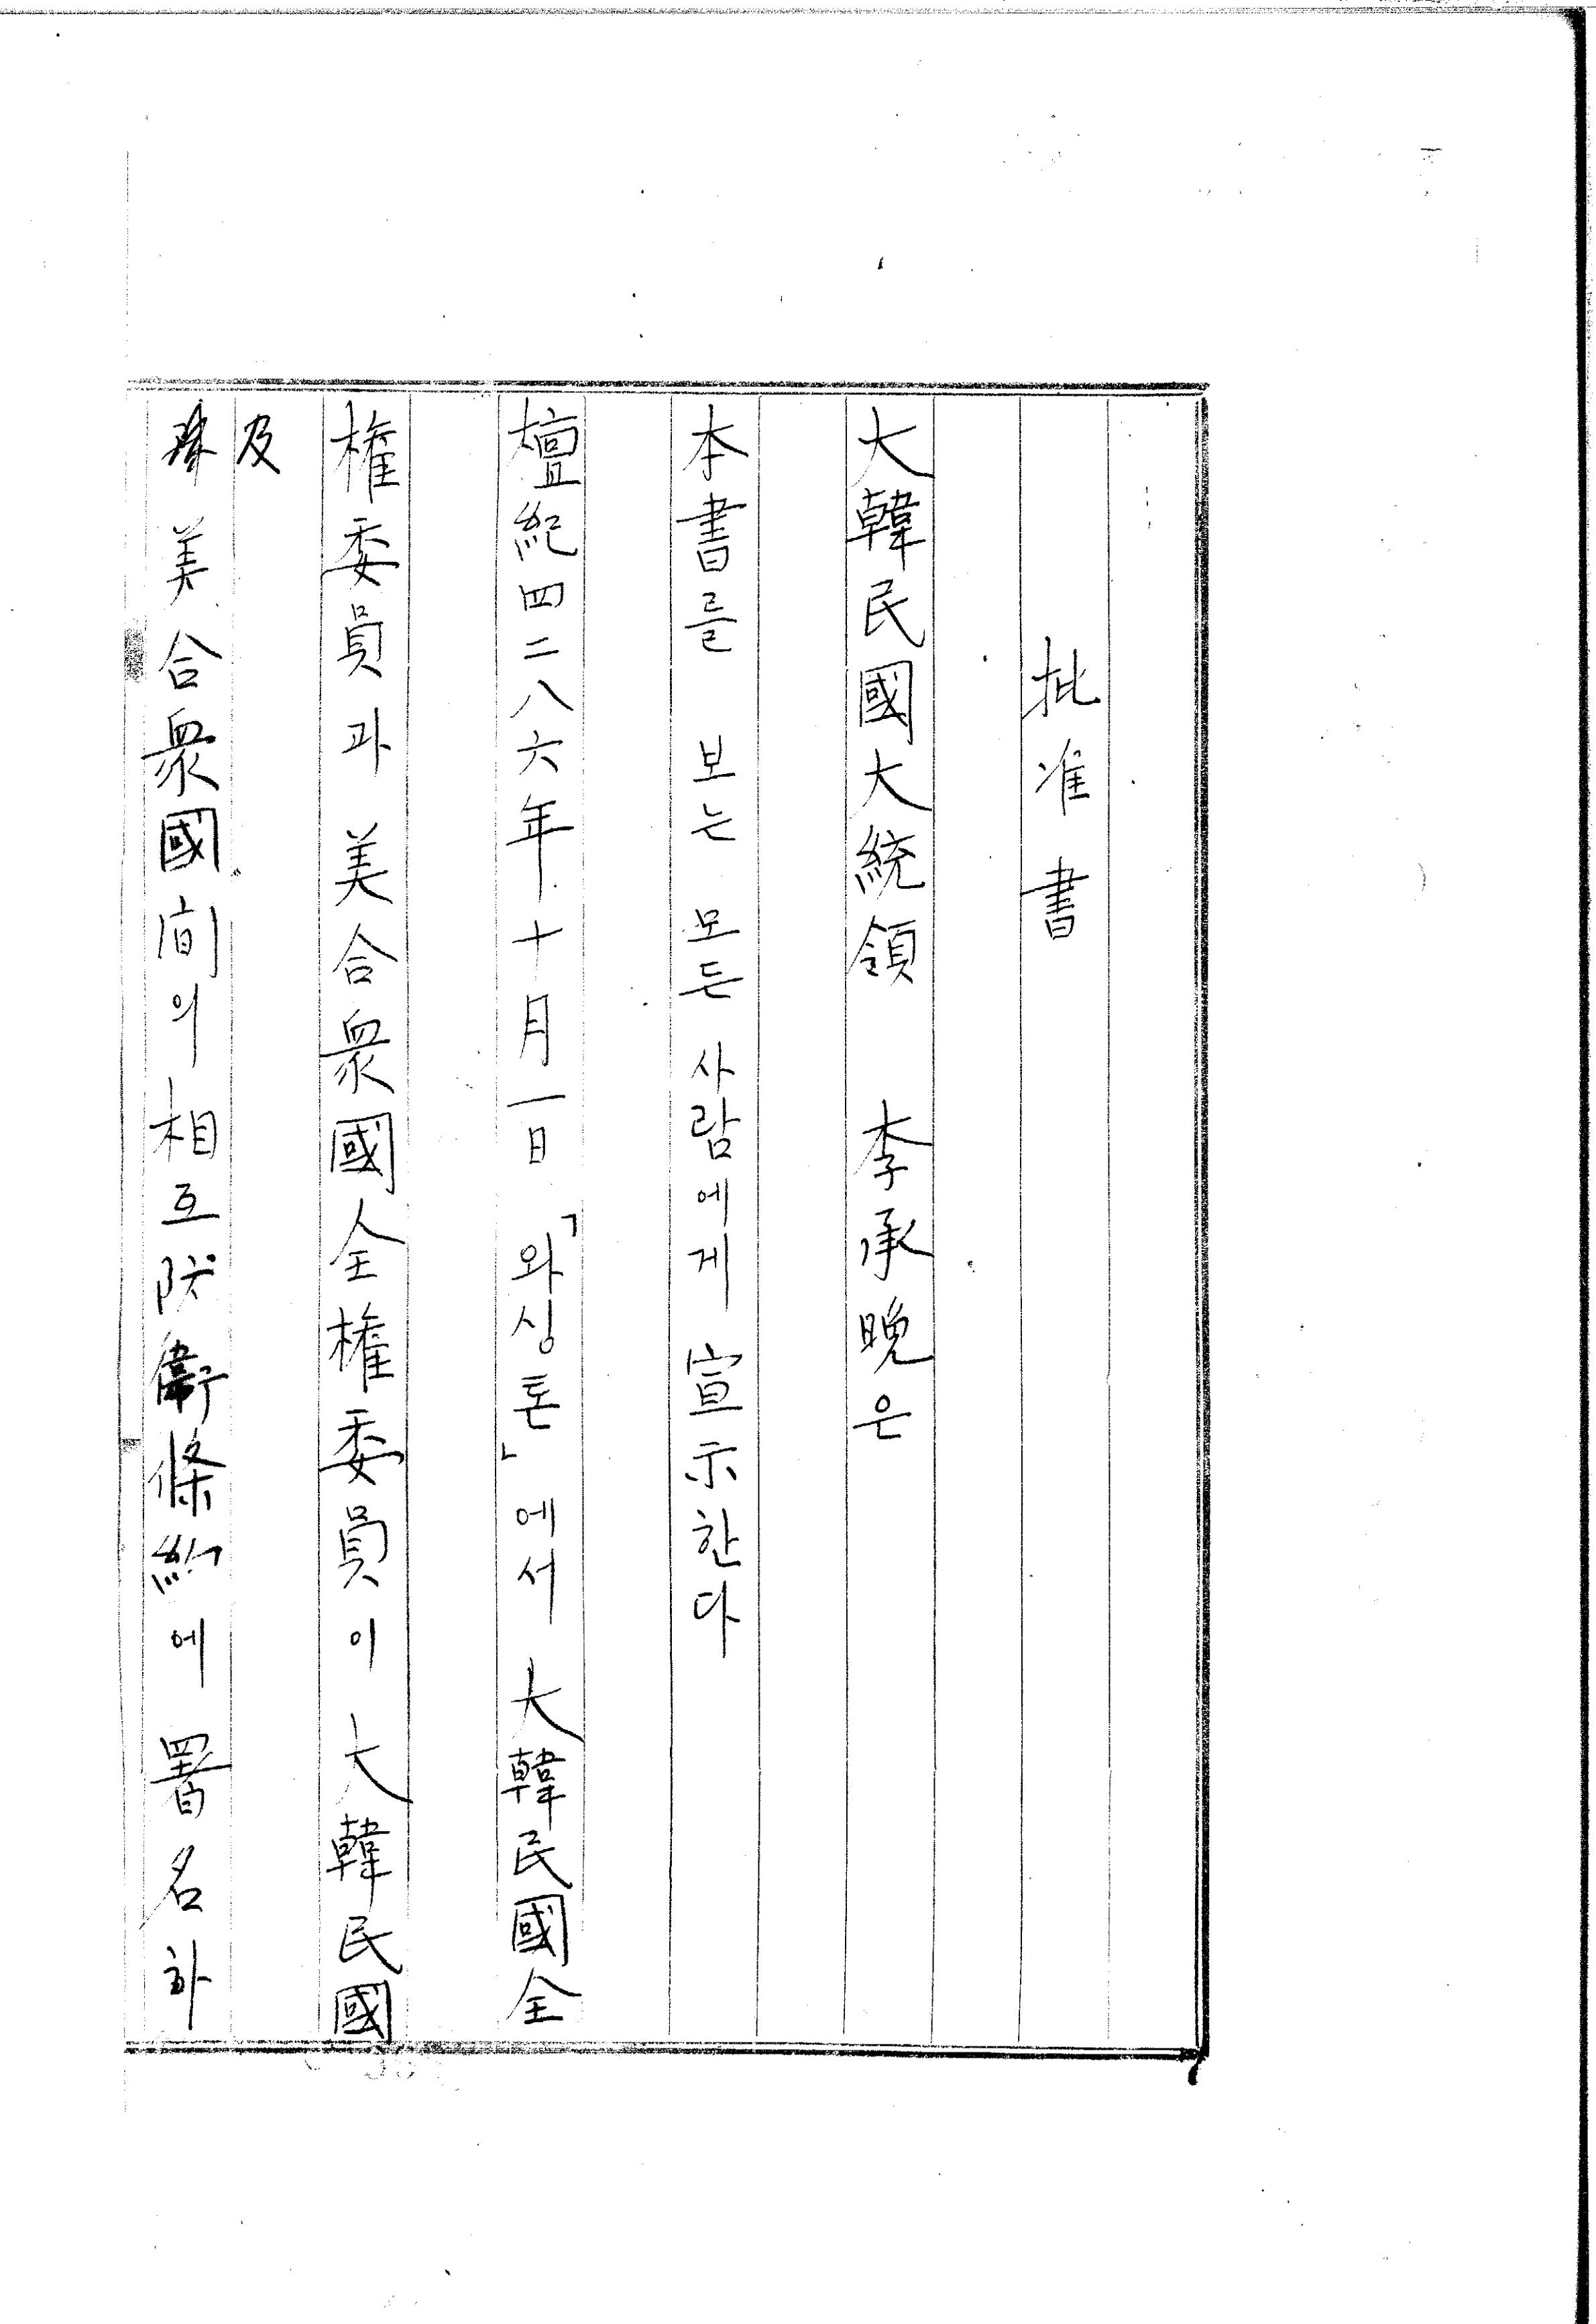 批准書
大韓民國大統領 李承晩은
本書를 보는 모든 사람에게 宣示한다
檀紀四二八六年十月一日 「와싱톤」에서 大韓民國全
權委員과 美合衆國全權委員이 大韓民國
及
美合衆國間의 相互防衛條約에 署名하